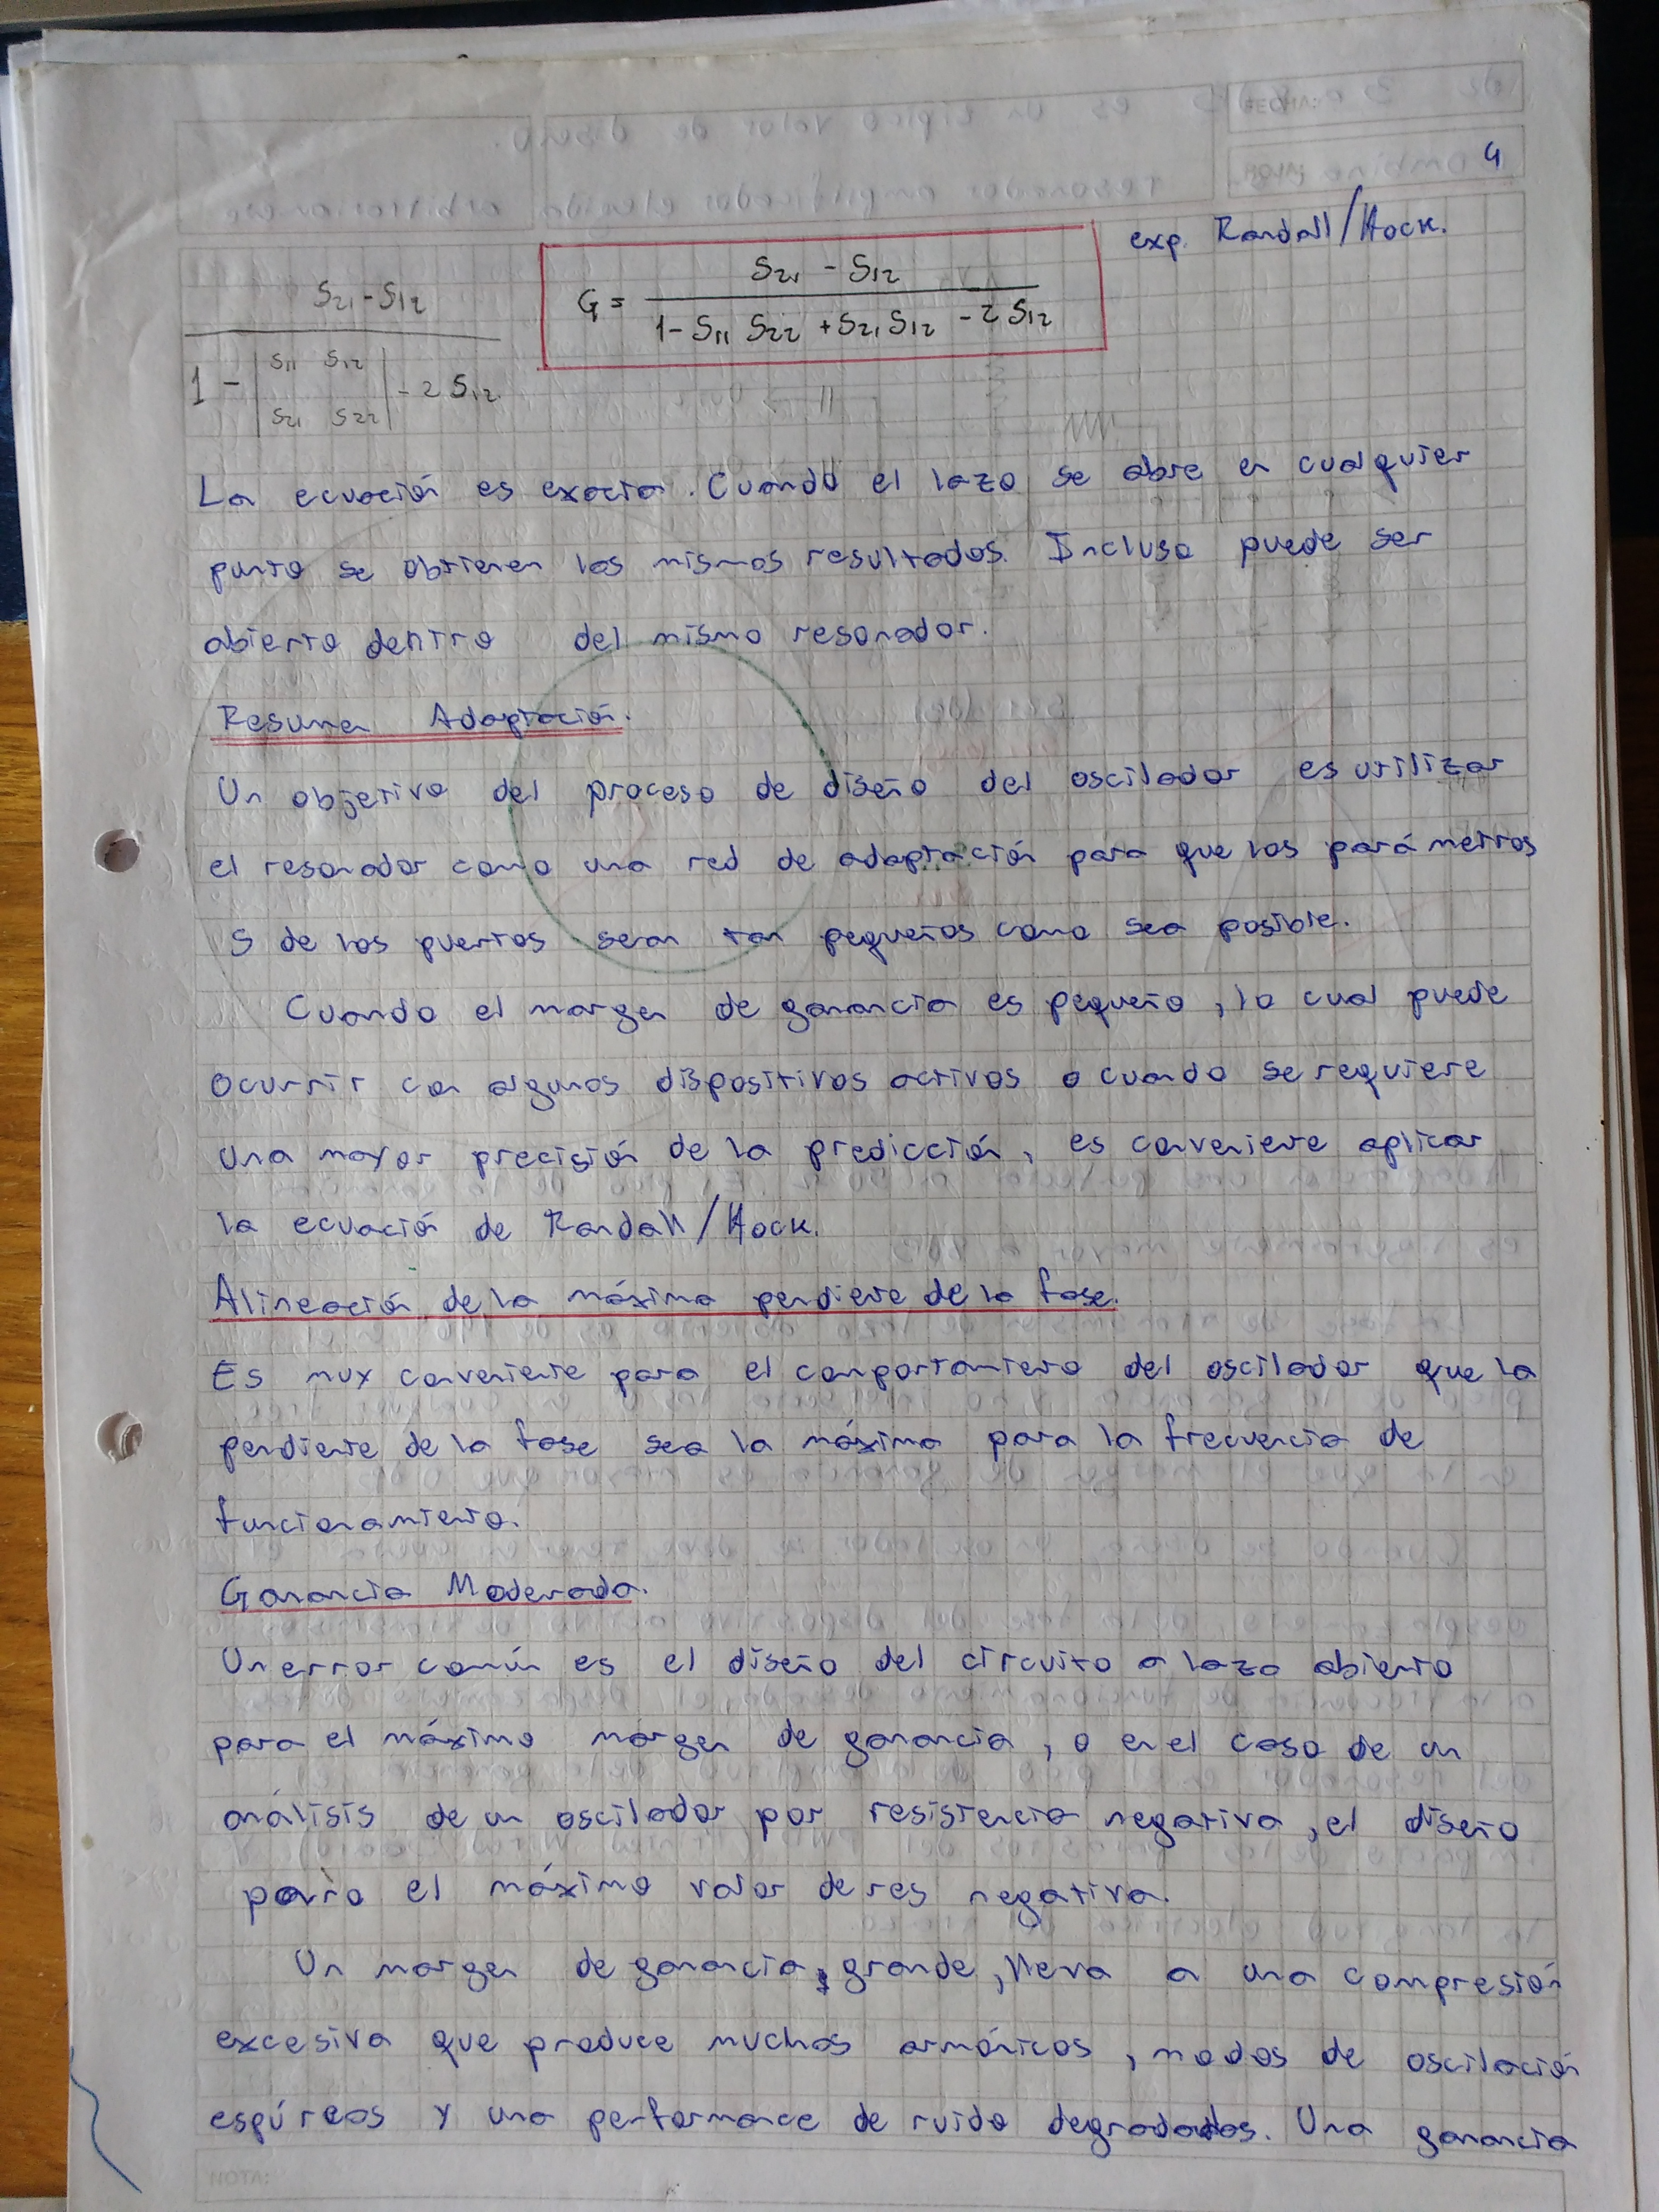 FECHA:
HOJA
4
exp. Randall/Hock.
S21 - S12
1 - | S11 S12 | - 2 S12
| S21 S22 |
G = S21 - S12
1 - S11 S22 + S21 S12 - 2 S12
La ecuación es exacta. Cuando el lazo se abre en cualquier
punto se obtienen los mismos resultados. Incluso puede ser
abierto dentro del mismo resonador.
Resumen Adaptación.
Un objetivo del proceso de diseño del oscilador es utilizar
el resonador como una red de adaptación para que los parámetros
S de los puertos sean tan pequeños como sea posible.
Cuando el margen de ganancia es pequeño, lo cual puede
ocurrir con algunos dispositivos activos o cuando se requiere
una mayor precisión de la predicción, es conveniente aplicar
la ecuación de Randall/Hock.
Alineación de la máxima pendiente de la fase.
Es muy conveniente para el comportamiento del oscilador que la
pendiente de la fase sea la máxima para la frecuencia de
funcionamiento.
Ganancia Moderada.
Un error común es el diseño del circuito a lazo abierto
para el máximo margen de ganancia, o en el caso de un
análisis de un oscilador por resistencia negativa, el diseño
para el máximo valor de res negativa.
Un margen de ganancia, grande, lleva a una compresión
excesiva que produce muchos armónicos, modos de oscilación
espúreos y una performance de ruido degradados. Una ganancia
NOTA: